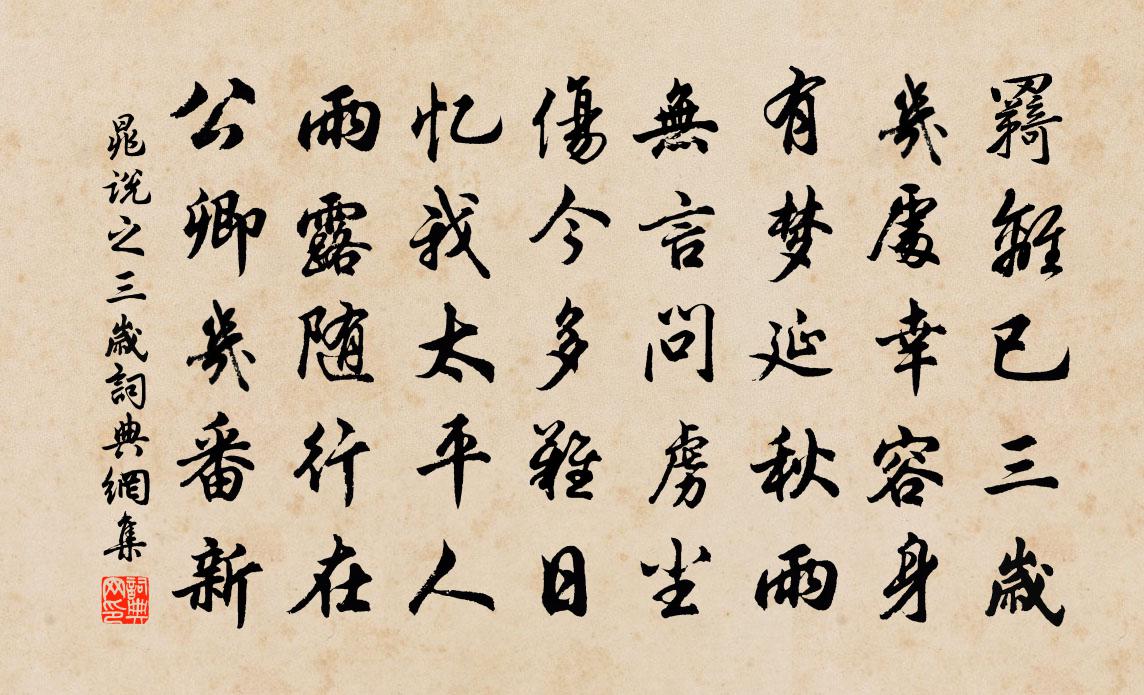 羇離已三歲
幾處幸容身
有梦延秋雨
無言問虜尘
傷今多難日
忆我太平人
雨露随行在
公卿幾番新
晁说之三歲詞典網集
詞典網印